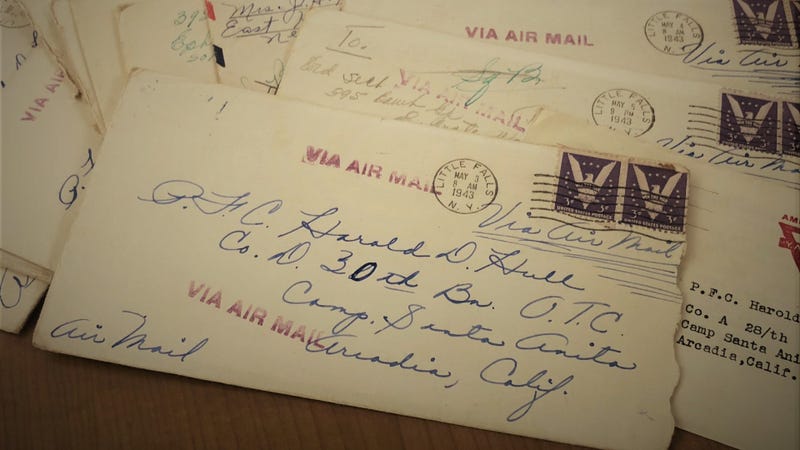 VIA AIR MAIL
LITTLE FALLS
MAY 3
8 AM
1943
N.Y.
Via Air Mail
UNITED STATES POSTAGE
3¢
3¢
P.F.C. Harold D. Hull
Co. D. 30th Bn. O.T.C.
Camp Santa Anita
Arcadia, Calif.
VIA AIR MAIL
Air Mail
VIA AIR MAIL
LITTLE FALLS
MAY 4
8 AM
1943
N.Y.
Via Air
To.
VIA AIR MAIL
LITTLE FALLS
MAY 5
8 PM
1943
N.Y.
Via Air Mail
P.F.C. Harold
Co. A 28/th
Camp Santa Ani
Arcadia,Calif.
Mrs.
East
VIA AIR